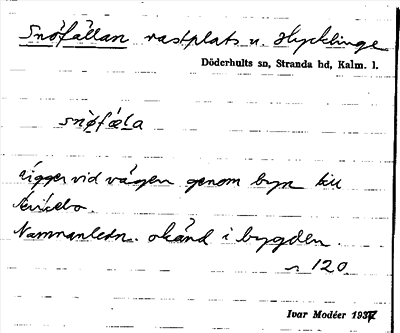 Snöfällan rastplats u. Hycklinge
Döderhults sn, Stranda hd, Kalm. l.
snø̀fæ̀la
ligger vid vägen genom byn till
Namnanledn. okänd i bygden.
120
Ivar Modéer 1937